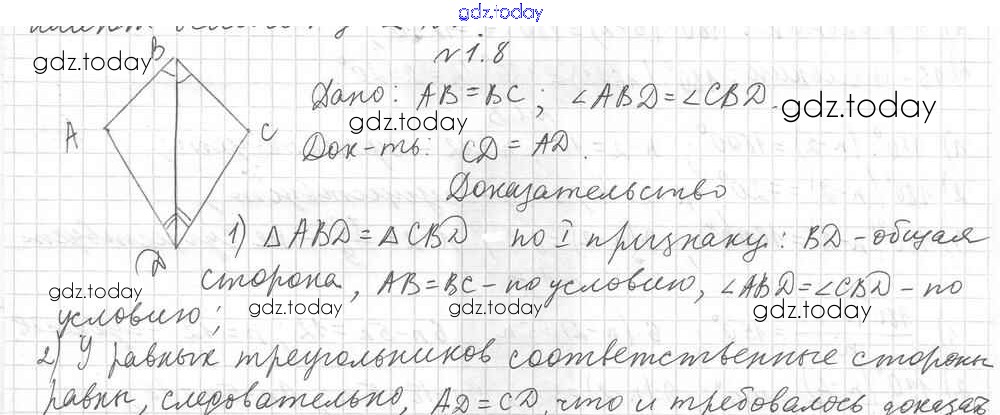 gdz.today
№1.8
B
gdz.today
Дано: AB = BC; ∠ABD = ∠CBD.
gdz.today
gdz.today
A
C
Док-ть: CD = AD.
Доказательство
1) △ABD = △CBD по I признаку: BD - общая
D
сторона, AB = BC - по условию, ∠ABD = ∠CBD - по
gdz.today
gdz.today
gdz.today
gdz.today
условию;
2) У равных треугольников соответственные стороны
равны, следовательно, AD = CD, что и требовалось доказат